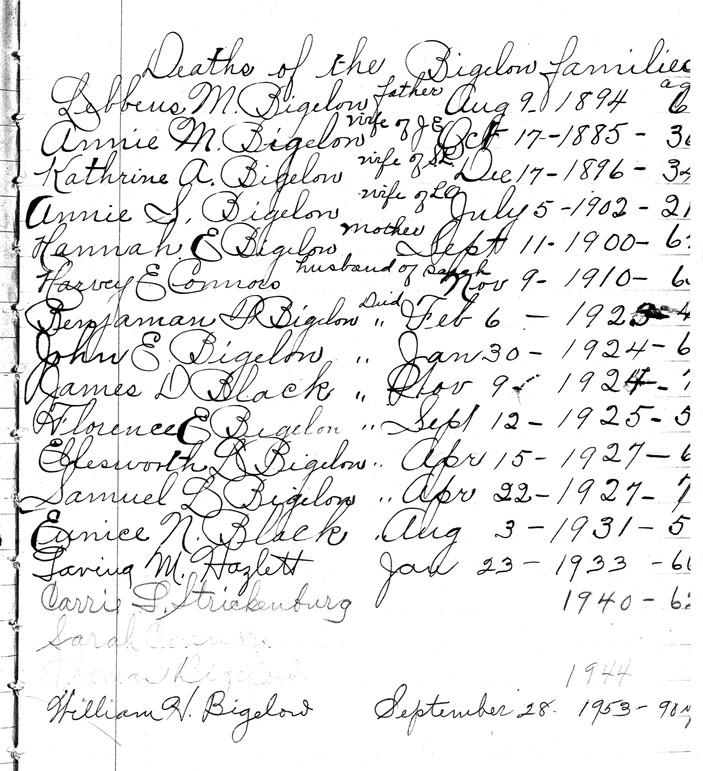 Deaths of the Bigelow families
Lebbeus M. Bigelow father Aug 9 - 1894
Annie M. Bigelow wife of J E Oct 17-1885 - 3
Kathrine A. Bigelow wife of SL Dec 17-1896 - 3
Annie S. Bigelow wife of LC July 5-1902 - 21
Hannah E Bigelow mother Sept 11-1900 - 6
Harvey E Connors husband of Sarah Nov 9 - 1910 - 6
Benjaman Bigelow Died " Feb 6 - 192
John E Bigelow " Jan 30 - 1924 - 6
James D Black " Nov 9 - 1924 - 7
Florence E Bigelow " Sept 12 - 1925 - 5
Ellesworth Bigelow " Apr 15 - 1927 - 6
Samuel L Bigelow " Apr 22 - 1927 - 7
Eunice N. Black Aug 3 - 1931 - 5
Lavina M. Hazlett Jan 23 - 1933 - 60
Carrie L. Strickenburg 1940 - 6
Sarah Connors
Thomas Bigelow 1944
William H. Bigelow September 28. 1953 - 90